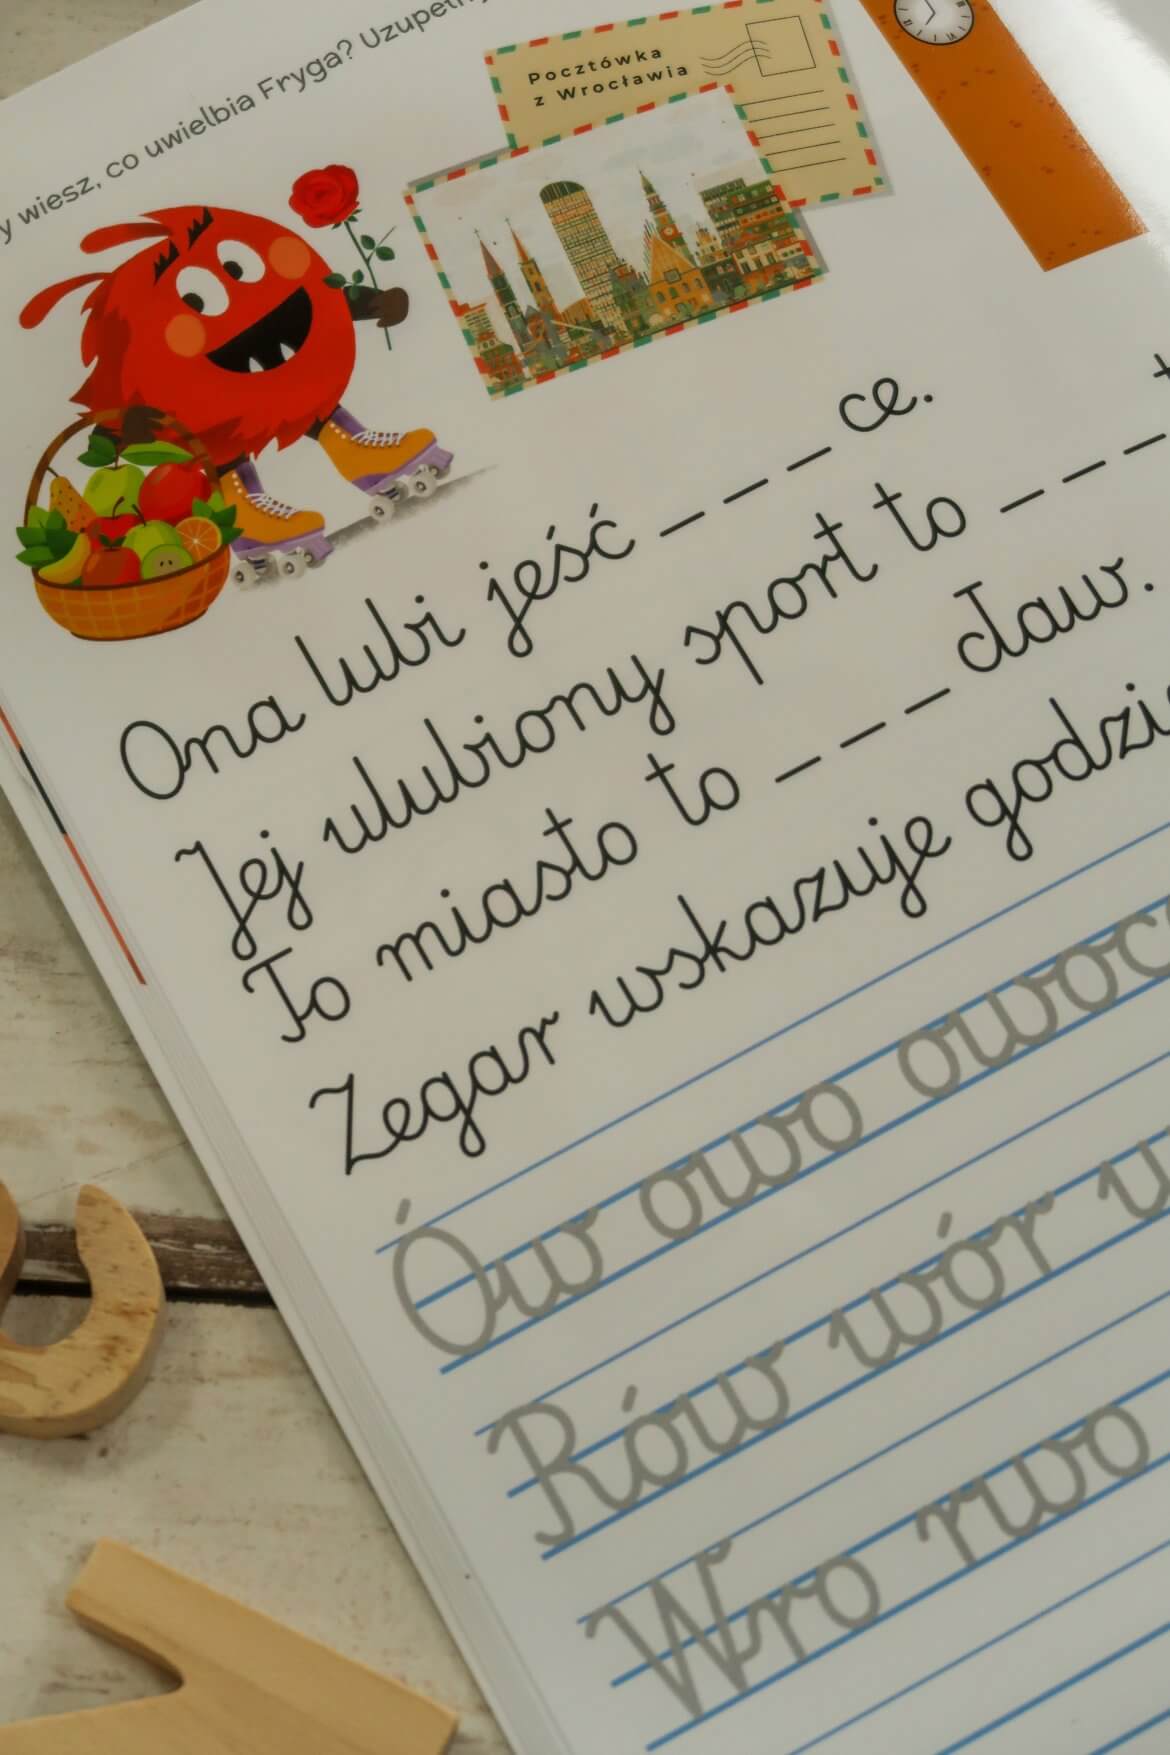 wiesz, co uwielbia Fryga?
Pocztówka
z Wrocławia
Ona lubi jeść _ _ _ ce.
Jej ulubiony sport to _ _ _
To miasto to _ _ _ cław.
Zegar wskazuje
Ów owo
Rów wór
Wro rwo